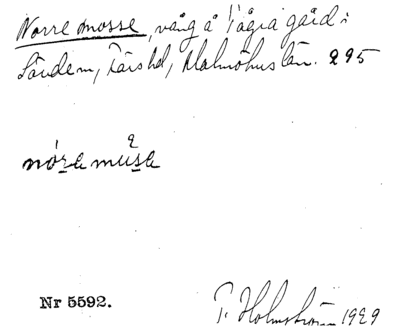 Norre mosse, vång å några gård i
Lövdem, Färs hd, Malmöhus län. 295
nóre muse
Nr 5592.
T. Holmström 1929